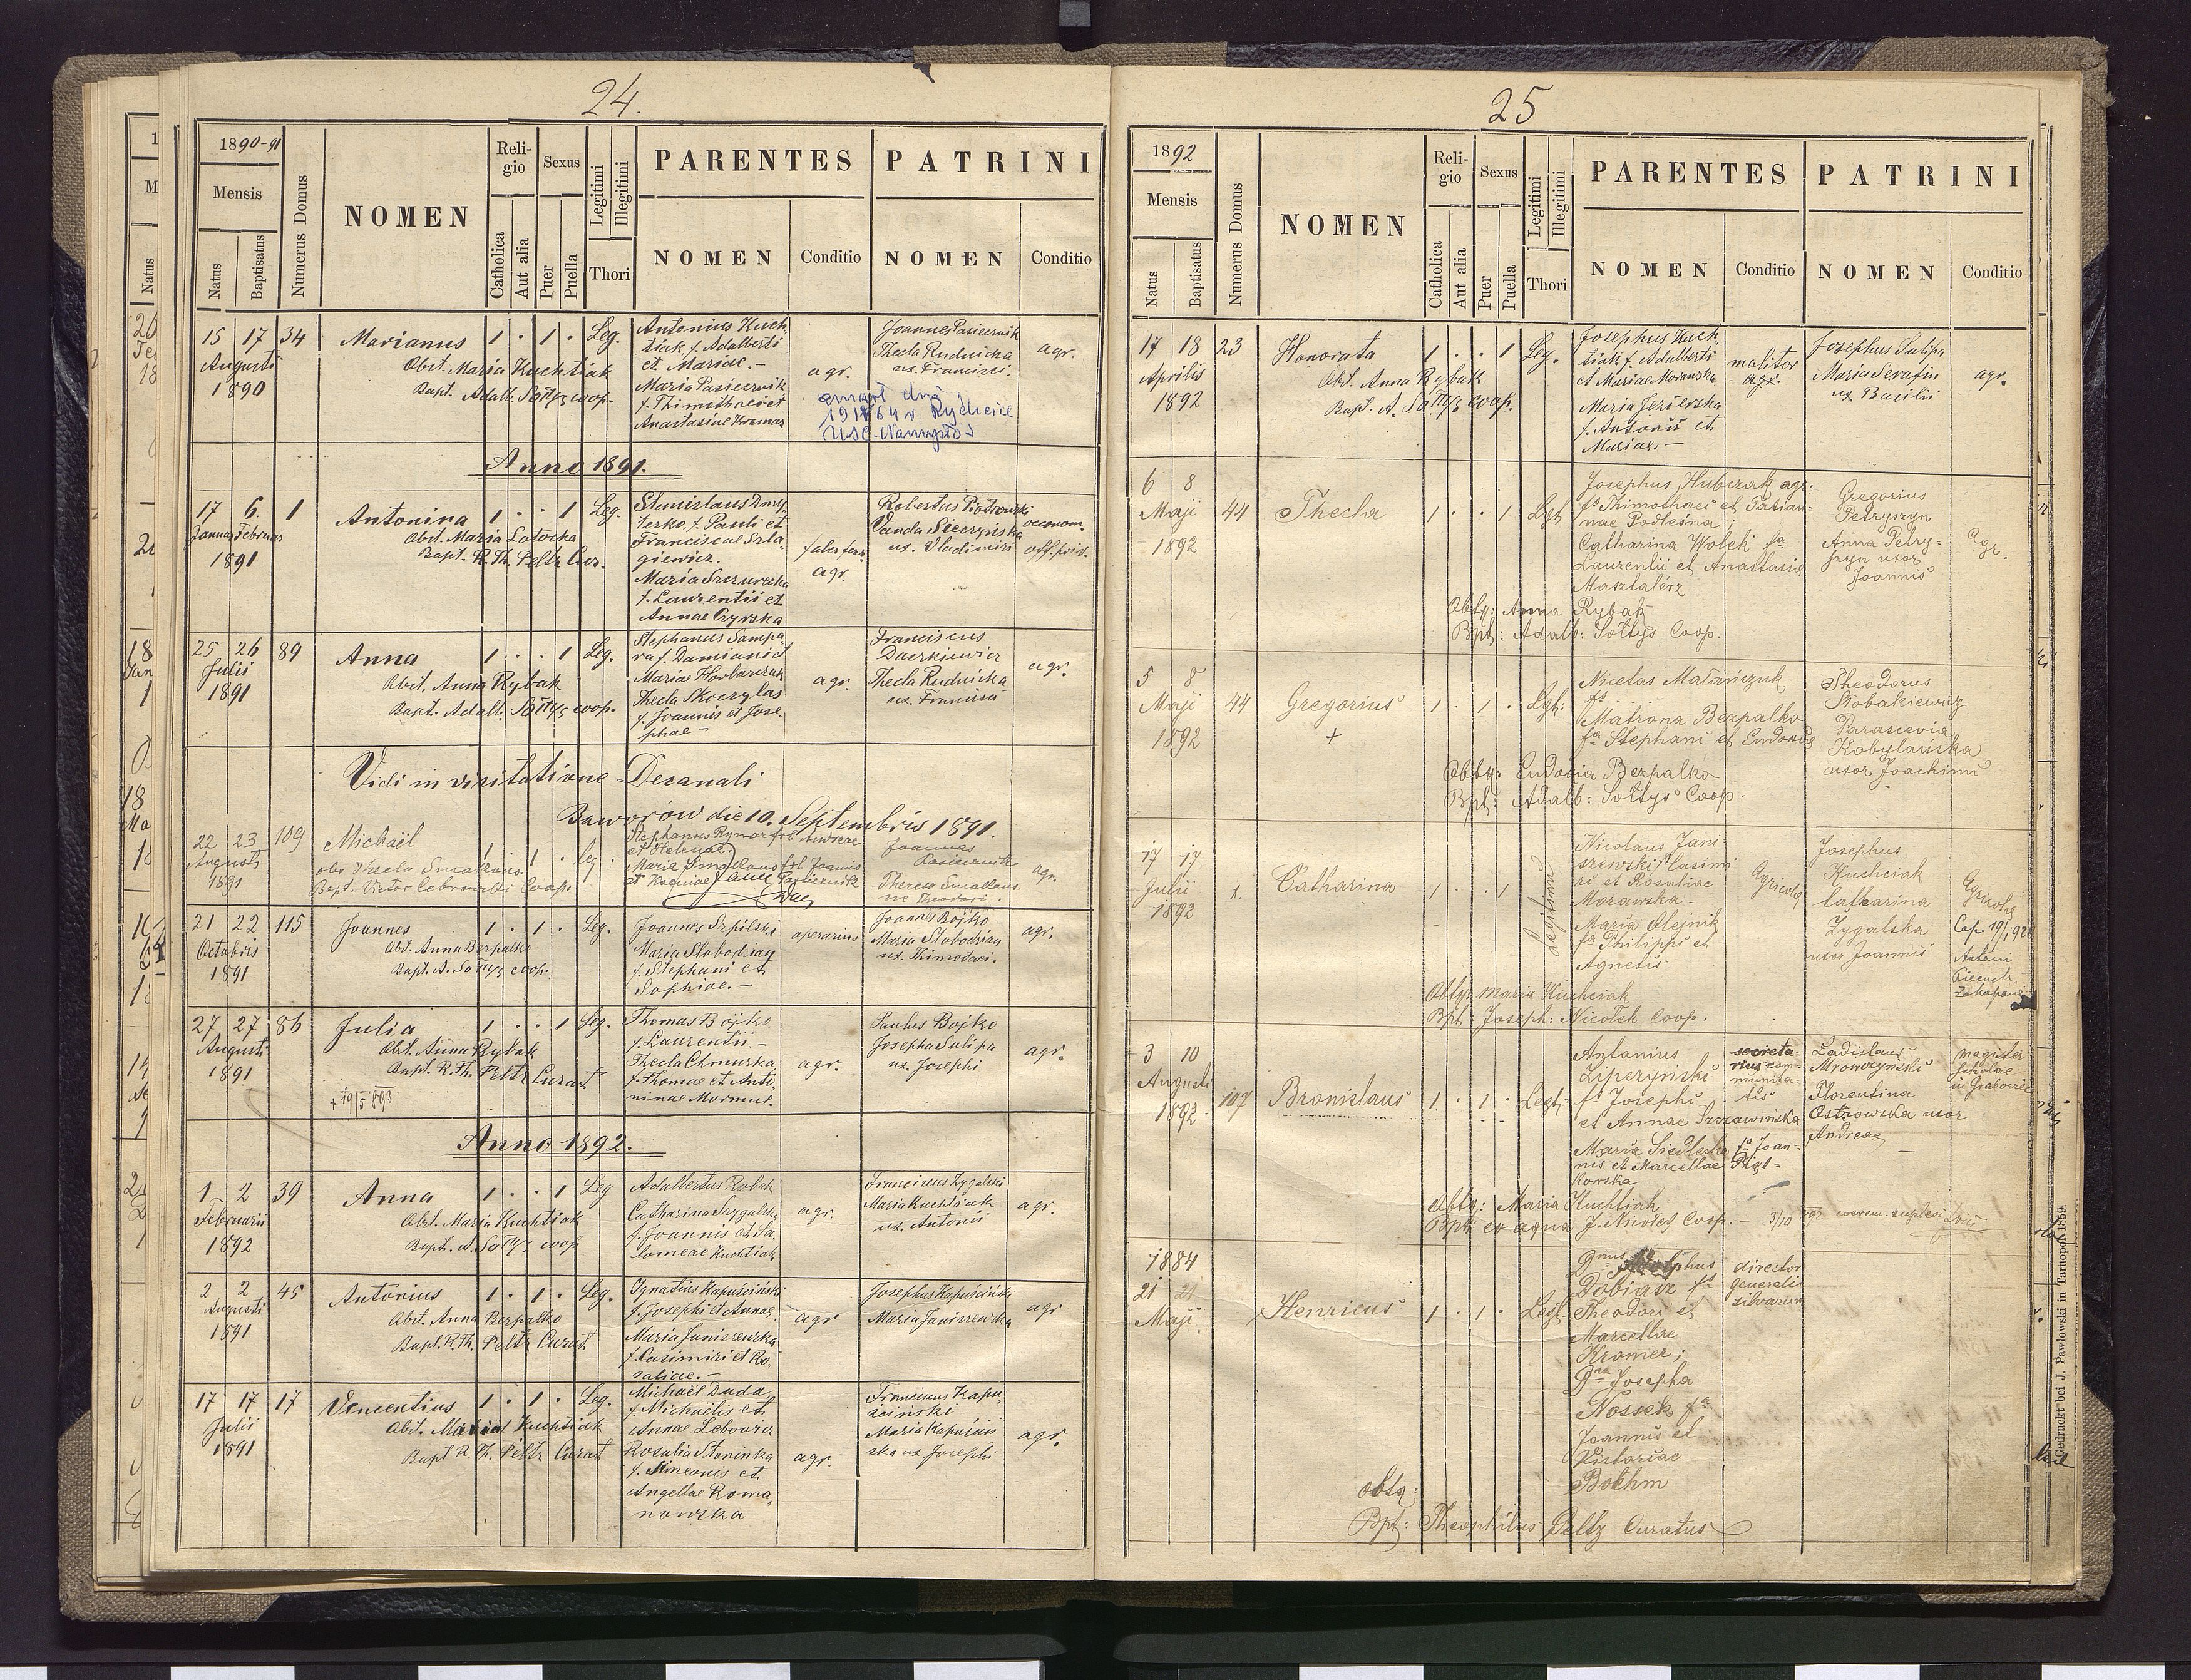 24.
1890-91
Mensis
Natus
Baptisatus
Numerus Domus
NOMEN
Religio
Catholica
Aut alia
Sexus
Puer
Puella
Legitimi
Illegitimi
Thori
PARENTES
NOMEN
Conditio
PATRINI
NOMEN
Conditio
15 17 34 Marianus 1 · 1 · Leg.
Augusti
1890
Obst. Maria Kuchtiak
Bapt. Adalb. Sołtys coop.
Antonius Kuch-
tiak f. Adalberti
et Mariae.-
Maria Pasiecznik
f. Thimothaei et
Anastasiae Kramar
agr.
Joannes Pasiecznik
Thecla Rudnicka
ux. Francisci.
agr.
Anno 1891.
17 6. 1 Antonina 1 · · 1 Leg.
Januar Februar
1891
Obst. Maria Łotocka
Bapt. R. Th. Peltz Cur.
Stanislaus Dmy-
terko, f. Pauli et
Franciscae Szla-
giewicz.
Maria Szczurecka
f. Laurentii et
Annae Czyrska
faber ferr.
agr.
Robertus Piotrowski
oeconom.
Vanda Sieczyńska
ux. Vladimiri
off. priv.
25 26 89 Anna 1 · · 1 Leg.
Julii
1891
Obst. Anna Rybak
Bapt. Adalb. Sołtys coop.
Stephanus Sampa-
ra f. Damiani et
Mariae Horbaczuk
Thecla Skoczylas
f. Joannis et Jose-
phae -
agr.
Franciscus
Daczkiewicz
Thecla Rudnicka
ux. Francisci
agr.
Vidi in visitatione Decanali
Baworów die 10. Septembris 1891.
22 23 109 Michaël 1 · 1 · leg.
Augusti
1891
obs. Thecla Smallaus
Bapt. Victor Cebrowski Coop.
Stephanus Rymar fil. Andreae
et Helenae.
Maria Smallaus fil. Joannis
Joannes
Pasiecznik
Theresa Smallaus
ux. Theodori.
agr.
21 22 115 Joannes 1 · 1 · Leg.
Octobris
1891
Obst. Anna Bezpalko
Bapt. A. Sołtys coop.
Joannes Szpilski
Maria Słobodzian
f. Stephani et
Sophiae.-
operarius
Joannes Bojko
Maria Słobodzian
ux. Thimothaei.
agr.
27 27 86 Julia 1 · · 1 Leg.
Augusti
1891
Obst. Anna Rybak
Bapt. R. Th. Peltz Curat.
+ 19/5 893
Thomas Bojko
f. Laurentii.-
Thecla Chmurka
f. Thomae et Anto-
ninae Mormul.
agr.
Paulus Bojko
Josepha Sulipa
ux. Josephi
agr.
Anno 1892.
1 2 39 Anna 1 · · 1 Leg
Februarii
1892
Obst. Maria Kuchtiak
Bapt. A. Sołtys coop
Adalbertus Robak
Catharina Szygalska
f. Joannis et Sa-
lomeae Kuchtiak
agr.
Franciscus Zygalski
Maria Kuchtiak
ux. Antonii
agr.
2 2 45 Antonius 1 · 1 · Leg.
Augusti
1891
Obst. Anna Bezpalko
Bapt. R. Th. Peltz Curat
Ignatius Kapuściński
f. Josephi et Annae
Maria Janiszewska
f. Casimiri et Ro-
saliae.-
agr
Josephus Kapuściński
Maria Janiszewska
agr
17 17 17 Vincentius 1 · 1 · Leg.
Julii
1891
Obst. Maria Kuchtiak
Bapt R. Th. Peltz Curat
Michaël Duda
f. Michaëlis et
Annae Lebovia
Rosalia Słoninka
f. Simeonis et
Angellae Roma-
nowska
agr.
Franciscus Kapu-
ściński
Maria Kapuściń-
ska ux Josephi
agr.
25
1892
Mensis
Natus
Baptisatus
Numerus Domus
NOMEN
Religio
Catholica
Aut alia
Sexus
Puer
Puella
Legitimi
Illegitimi
Thori
PARENTES
NOMEN
Conditio
PATRINI
NOMEN
Conditio
17 18 23 Honorata 1 · · 1 Leg.
Aprilis
1892
Obst. Anna Rybak
Bapt. A. Sołtys coop.
Josephus Kuch
tiak f. Adalberti
et Mariae Morawska
Maria Jezierska
f. Antonii et
Mariae.-
molitor
agr.
Josephus Sulipa
Maria Serafin
ux. Basilii
agr.
6 8
Maji 44 Thecla 1 · · 1 Lgt
1892
Josephus Hubczak agr.
fs Thimothaei et Tatian-
nae Podleśna;
Catharina Wołek fa
Laurentii et Anastasiae
Masztalerz
Obstq: Anna Rybak
Bpt: Adalb: Sołtys Coop.
Gregorius
Petryszyn
Anna Petry-
szyn uxor
Joannis
Agr.
5 8
Maji 44 Gregorius 1 · 1 · Lgt:
1892
+
Nicetas Matańczuk
fs
Matrona Bezpalko
fa Stephani et Eudoxiae
Obstq: Eudoxia Bezpalko
Bpt: Adalb: Sołtys Coop.
Theodorus
Kobakiewicz
Parascevia
Kobylańska
uxor Joachimi
17 17
Julii 1. Catharina 1 · · 1 Legitimi
1892
Nicolaus Jani
szewski fs Casimi
ri et Rosaliae
Morawska -
Maria Olejnik
fa Philippi et
Agnetis
Agricolae
Obstq: Maria Kuchciak
Bpt: Joseph: Nicołek Coop.
Josephus
Kuchciak
Catharina
Zygalska
uxor Joannis
Agricolae
Cop. 19/1 92
Antoni
3 10
Augusti 107 Bronislaus 1 · 1 · Legt:
1892
Antonius
Lipczyński
fs Josephi
et Annae Szczawińska
Maria Siedlecka fa Joan-
nis et Marcellae Piąt-
kowska
secreta-
rius com-
munita-
tis
Ladislaus
Mroczyński
Florentina
Ostrowska uxor
Andreae
magister
scholae
in Grabowiec
Obstq: Maria Kuchtiak
Bpt: ex aqua J. Nicołek Coop. -
1884
21 21 Henricus 1 · 1 · Legt.
Maji
Dnus Adolphus
Dobiasz fs
Theodori et
Marcellae
Kromer;
Dna Josepha
Nossek fa
Joannis et
Victoriae
Boehm
director
generalis
silvarum
obstq:
Bpt: Theophilus Peltz Curatus
Gedruckt bei J. Pawlowski in Tarnopol 1859.